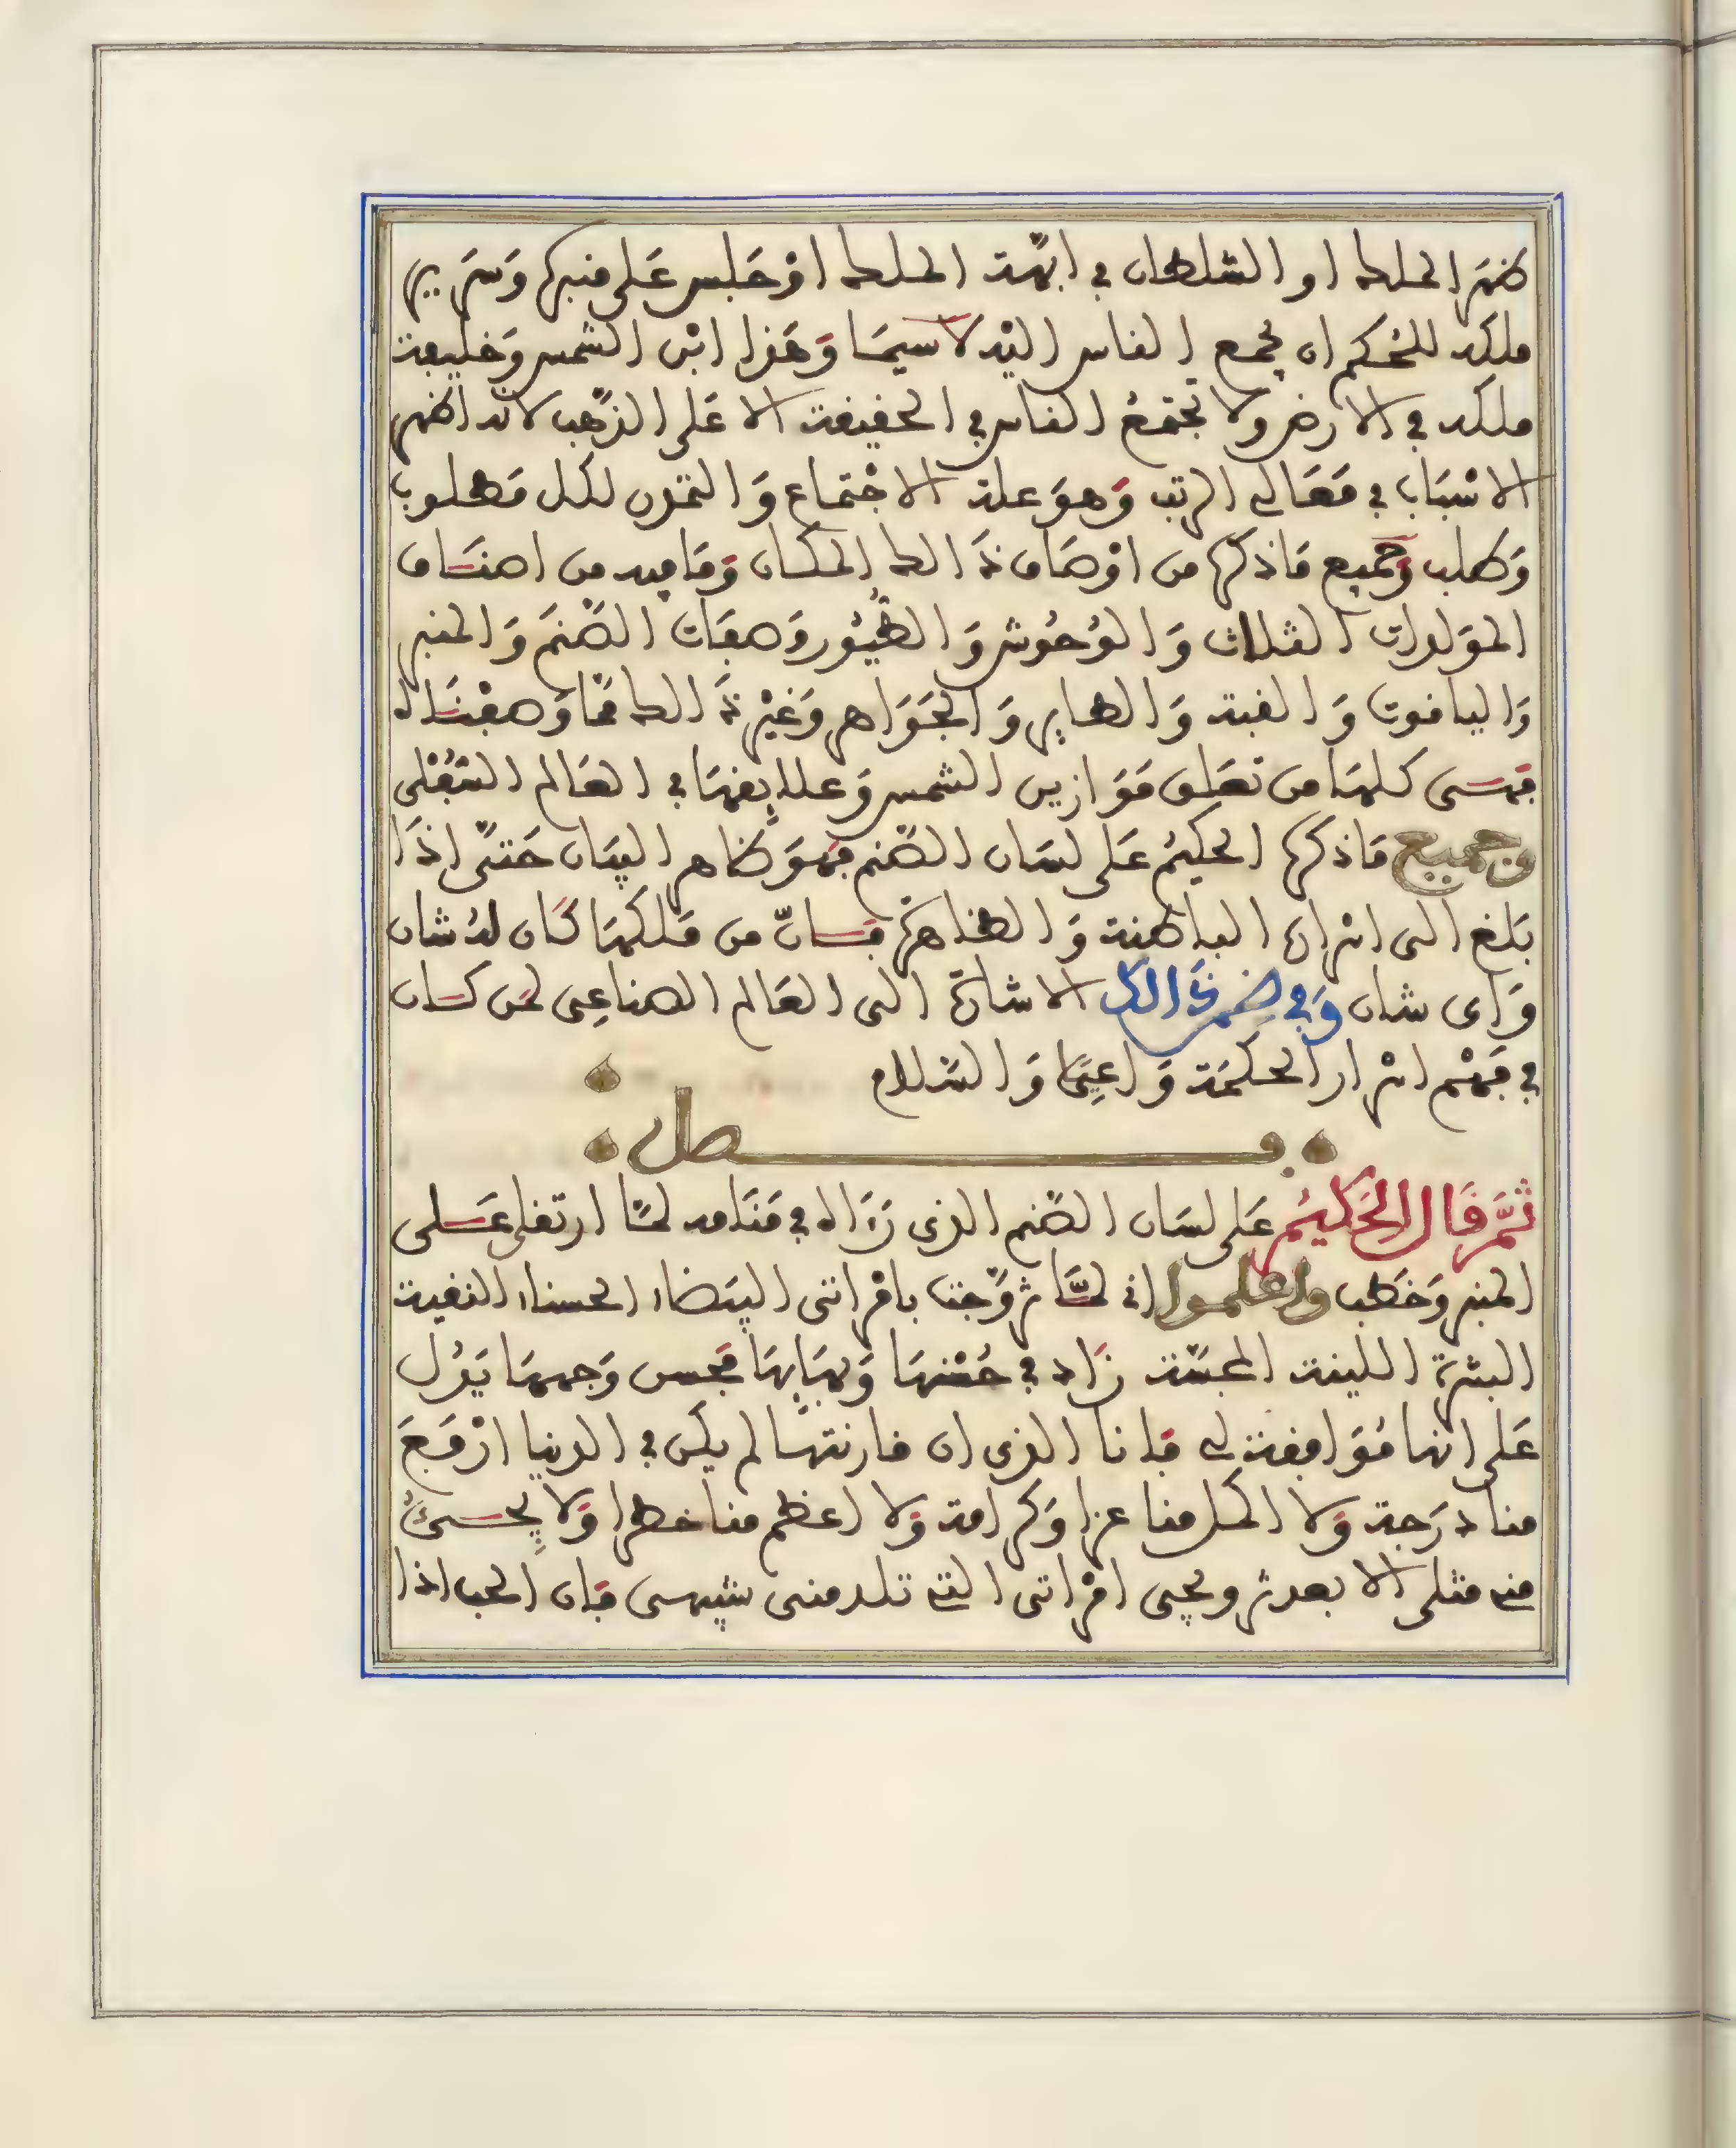 ظهر الملك او السلطان في ابهة الملك او جلس على منبره وسرير
ملكه للحكم ان يجمع الناس اليه لا سيما وهذا ابن الشمس وخليفة
ملكه في الارض ولا تجتمع الناس في الحقيقة الا على الذهب لانه اظهر
الاسباب في معالى الرتب وهو علة الاجتماع والتمدن لكل مطلوب
وطلب وجميع ما ذكره من اوصاف ذالك المكان وما فيه من اصناف
المولدات الثلاث والوحوش والطيور وصفات الصنم والمنبر
واليافوت والقبة والطاير والجواهر وغير ذالك مما وصفناه
فهى كلها من تعلق موازين الشمس وعلايقها في العالم السفلى
وجميع ما ذكره الحكيم على لسان الصنم فهو ظاهر البيان حتى اذا
بلغ الى اسراره الباطنة والظاهرة فان من ملكها كان له شان
واى شان وفي ضمن ذالك الاشارة الى العالم الصناعى لمن كان
في فهم اسرار الحكمة واعيا والسلام
فصل
ثم قال الحكيم على لسان الصنم الذى رءاه في منامه لما ارتقى على
المنبر وخطب واعلموا انى لما تزوجت بامراتى البيضاء الحسناء النقية
البشرة اللينة المجسة زاد في حسنها وبهايها فحسن وجهها يدل
على انها موافقة لى فانا الذى ان قارنتها لم يكن في الدنيا ارفع
منا درجة ولا اكمل منا عزا وكرامة ولا اعظم منا خطرا ولا يجىء
منى مثلى الا بعد تزويجى امراتى التى تلد منى شبهى فان الحب اذا